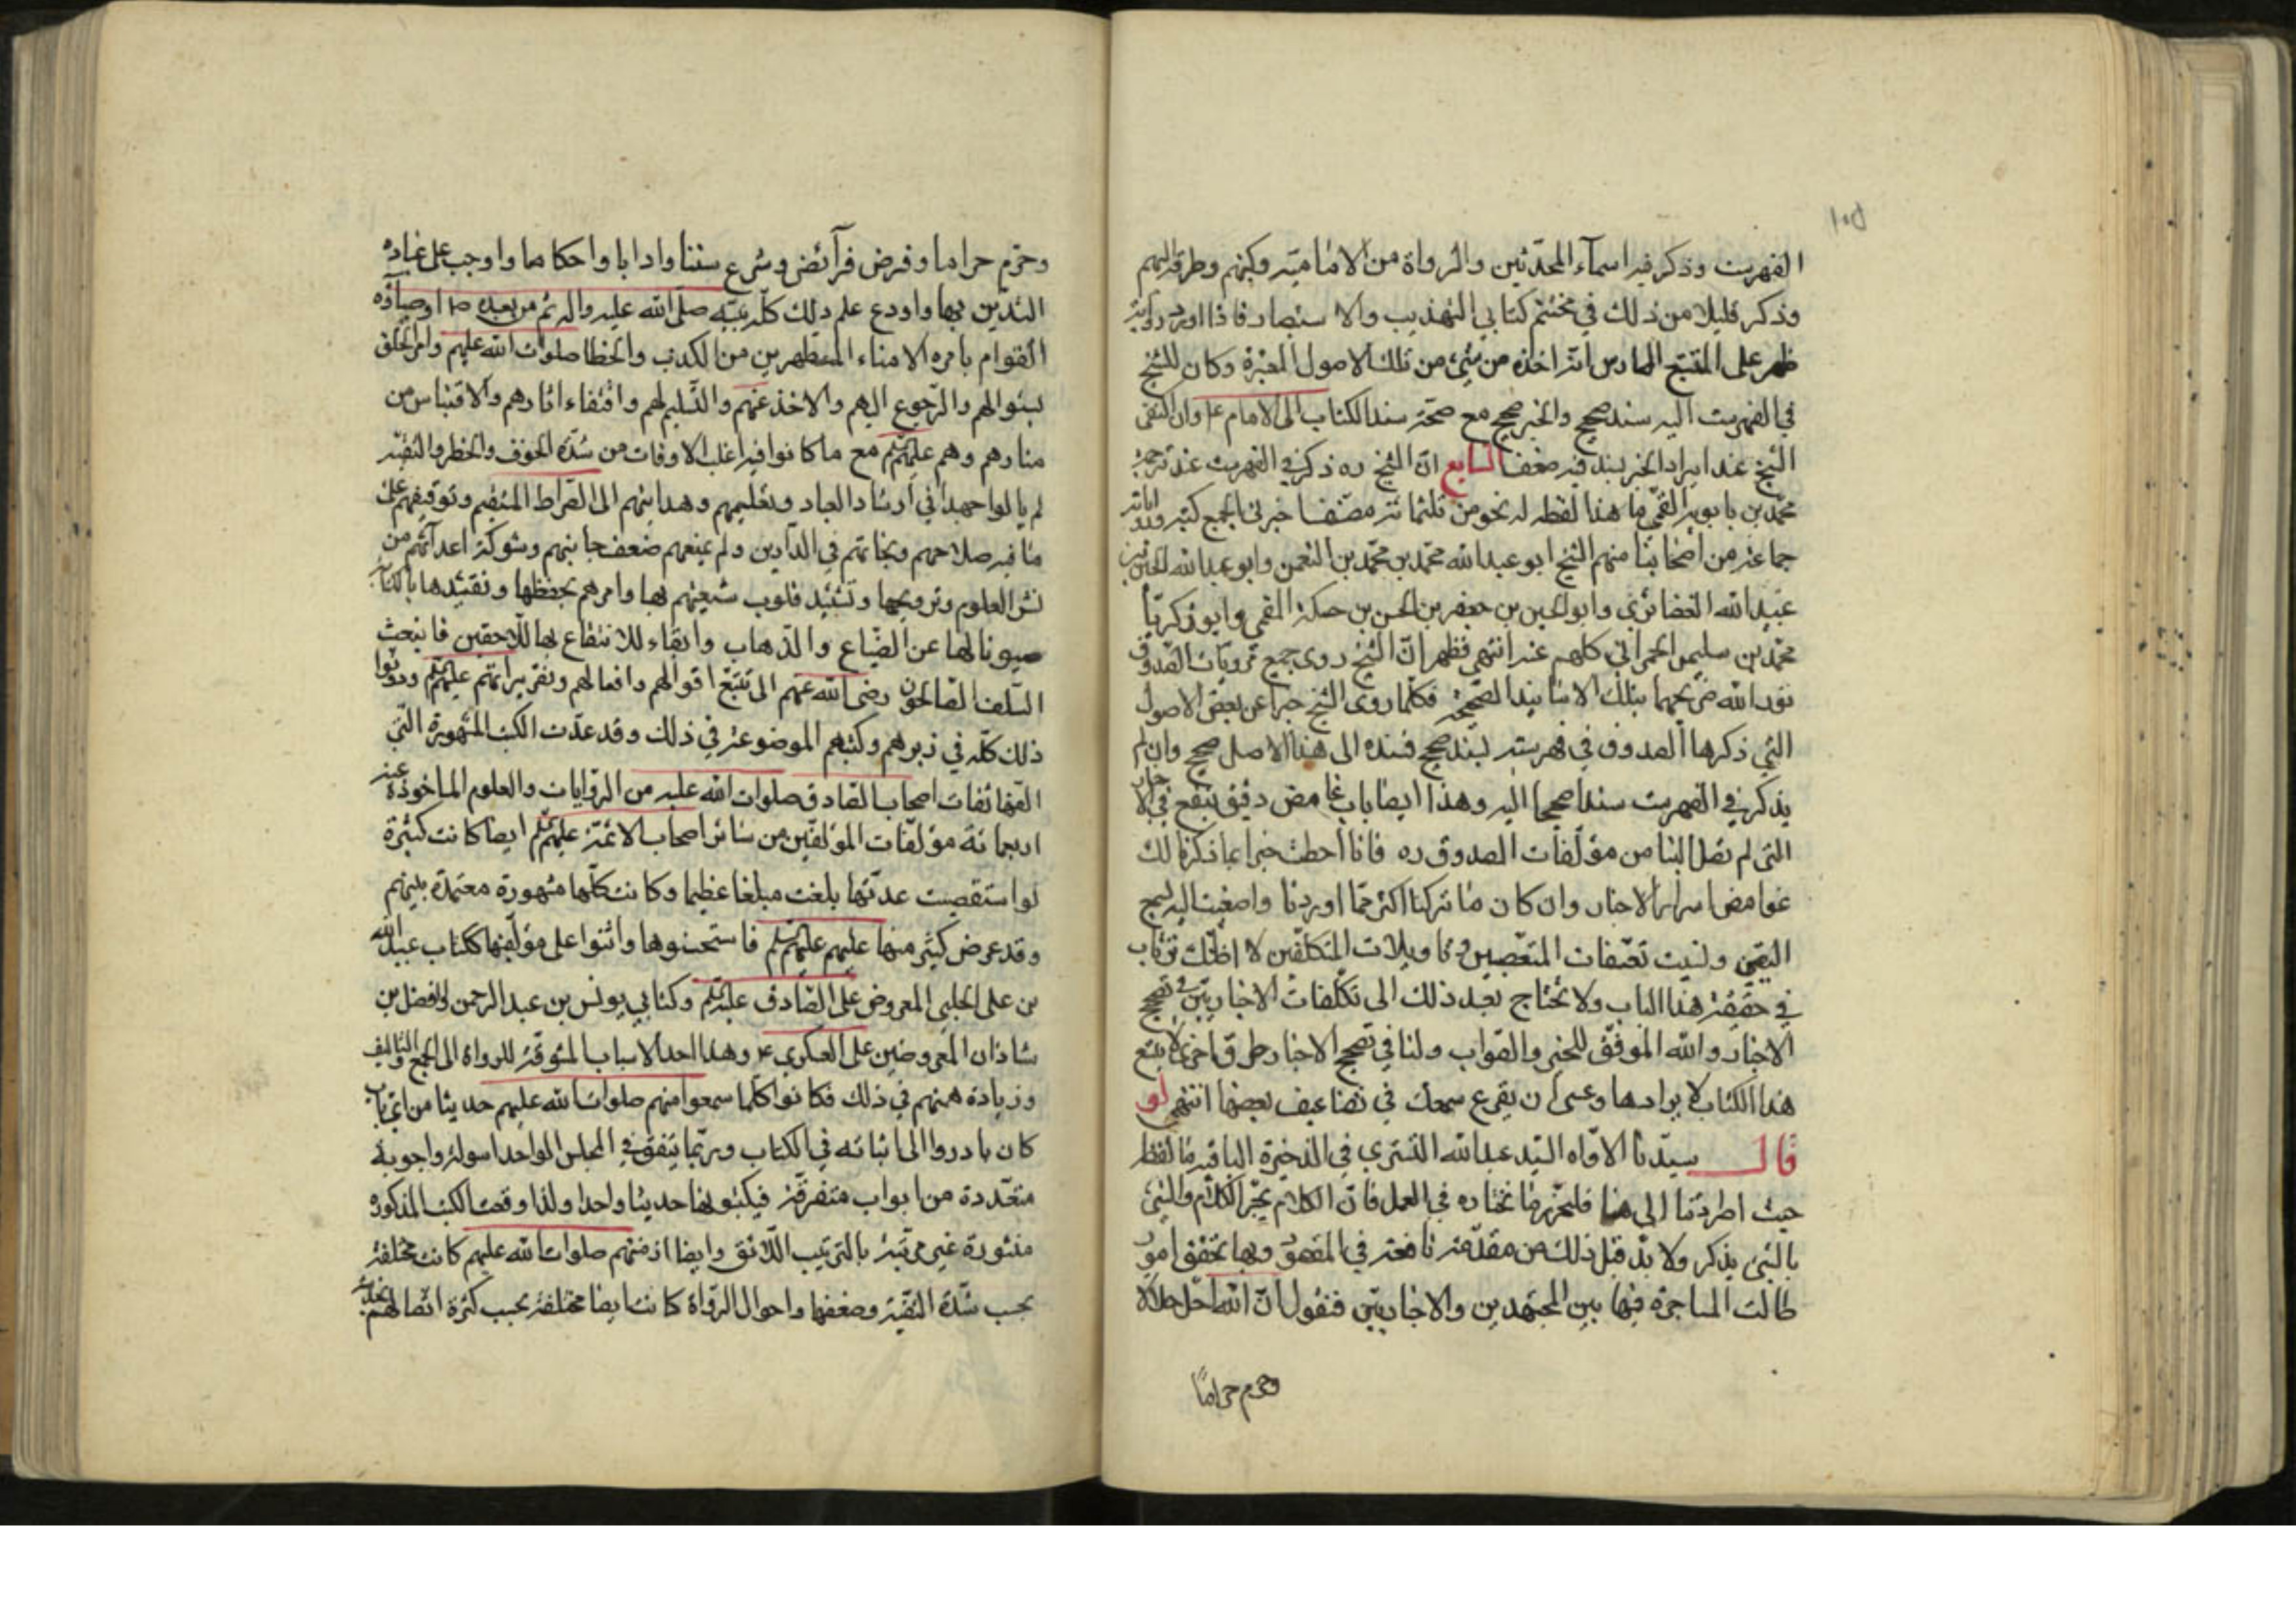 الفهرست وذكر فيه اسماء المحدثين والرواة من الامامية وكتبهم وطرقه اليهم
وذكر قليلا من ذلك في مختتم كتابي التهذيب والاستبصار فاذا اورد رواية
ظهر على المتتبع الممارس انه اخذه من شئ من تلك الاصول المعتبرة وكان للشيخ
في الفهرست اليه سند صحيح والخبر صحيح مع صحة سند الكتاب الى الامام ع وان اكتفى
الشيخ عند ايراد الخبر بسند فيه ضعف السابع ان الشيخ ره ذكر في الفهرست عند ترجمة
محمد بن بابويه القمي ما هذا لفظه له نحو من ثلثمائة مصنف اخبرني بجميع كتبه ورواياته
جماعة من اصحابنا منهم الشيخ ابو عبد الله محمد بن محمد بن النعمن وابو عبد الله الحسين بن
عبيد الله الغضائري وابو الحسين بن جعفر بن الحسن بن حسكة القمي وابو زكريا
محمد بن سليمن الحمراني كلهم عنه انتهى فظهر ان الشيخ روى جميع مرويات الصدوق
نور الله ضريحهما بتلك الاسانيد الصحيحة فكلما روى الشيخ خبرا عن بعض الاصول
التي ذكرها الصدوق في فهرسته بسند صحيح فسنده الى هذا الاصل صحيح وان لم
يذكر في الفهرست سندا صحيحا اليه وهذا ايضا باب غامض دقيق ينفع في الاخبار
التي لم تصل الينا من مؤلفات الصدوق ره فاذا احطت خبرا بما ذكرنا لك
غوامض اسرار الاخبار وان كان ما تركنا اكثر مما اوردنا واصغيت اليه بسمع
اليقين ونسيت تعسفات المتعصبين وتاويلات المتكلفين لا اظنك ترتاب
في حقيقة هذا الباب ولا تحتاج بعد ذلك الى تكلفات الاخباريين في تصحيح
الاخبار والله الموفق للخير والصواب ولنا في تصحيح الاخبار طرق اخرى لا يتسع
هذا الكتاب لايرادها وعسى ان يقرع سمعك في تضاعيف بعضها انتهى لو
قال سيدنا الاواه السيد عبد الله التستري في الذخيرة الباقية ما لفظه
حيث اطردنا الى هنا فلنحرر ما نختاره في العمل فان الكلام يجر الكلام والشئ
بالشئ يذكر ولا بد قبل ذلك من مقدمة نافعة في المقصود وبها تحقق امور
طالت المشاجرة فيها بين المجتهدين والاخباريين فنقول ان الله احل حلالا
وحرم حراما
وحرم حراما وفرض فرآئض وشرع سننا وادابا واحكاما واوجب على عباده
التدين بها واودع علم ذلك كله نبيه صلى الله عليه واله ثم من بعده ص اوصياؤه
القوام بامره الامناء المطهرين من الكذب والخطا صلوات الله عليهم وامر الخلق
بسئوالهم والرجوع اليهم والاخذ عنهم والتسليم لهم واقتفاء اثارهم والاقتباس من
منارهم وهم عليهم السلم مع ما كانوا فيه اغلب الاوقات من شدة الخوف والخطر والتقية
لم يالوا جهدا في ارشاد العباد وتعليمهم وهدايتهم الى الصراط المستقيم وتوقيفهم على
ما فيه صلاحهم ونجاتهم في الدارين ولم يمنعهم ضعف جانبهم وشوكة اعدآئهم من
نشر العلوم وترويجها وتشئيد قلوب شيعتهم بها وامرهم بحفظها وتقئيدها بالكتابة
صيونا لها عن الضياع والذهاب وابقاء للانتفاع بها للاحقين فانبعث
السلف الصالحون رضى الله عنهم الى تتبع اقوالهم وافعالهم وتقريراتهم عليهم السلم ودونوا
ذلك كله في زبرهم وكتبهم الموضوعة في ذلك وقد عدت الكتب المشهورة التي
الفها ثقات اصحاب الصادق صلوات الله عليه من الروايات والعلوم الماخوذة عنه
اربعمائة مؤلفات المؤلفين من سائر اصحاب الائمة عليهم السلم ايضا كانت كثيرة
لو استقصيت عدتها بلغت مبلغا عظيما وكانت كلها مشهورة معتمدة بينهم
وقد عرض كثير منها عليهم عليهم السلم فاستحسنوها واثنوا على مؤلفيها ككتاب عبيد الله
بن على الحلبي المعروض على الصادق عليه السلم وكتابي يونس بن عبد الرحمن والفضل بن
شاذان المعروضين على العسكري ع وهذا احد الاسباب المشوقة للرواة الى الجمع والتاليف
وزيادة همتهم في ذلك فكانوا كلما سمعوا منهم صلوات الله عليهم حديثا من اي باب
كان بادروا الى اثباته في الكتاب وربما يتفق في المجلس الواحد اسولة واجوبة
متعددة من ابواب متفرقة فيكتبونها حديثا واحدا ولذا وقعت الكتب المذكورة
منثورة غير مرتبة بالترتيب اللائق وايضا ازمنتهم صلوات الله عليهم كانت مختلفة
بحسب شدة التقية وضعفها واحوال الرواة كانت ايضا مختلفة بحسب كثرة اتصالهم